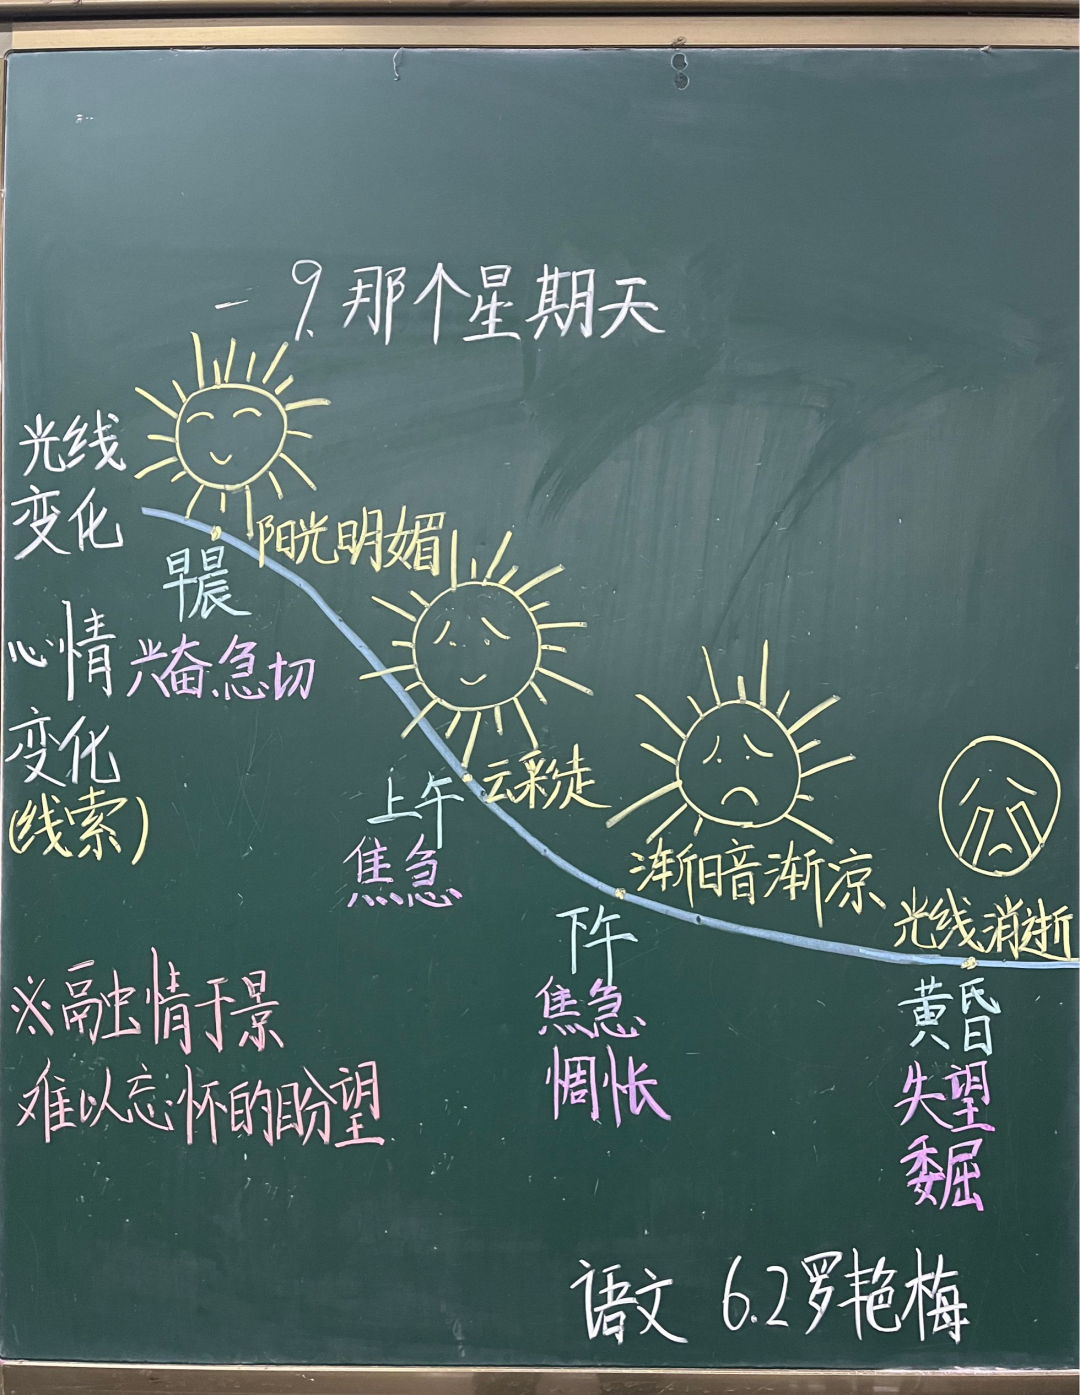 9.那个星期天
光线
变化
阳光明媚
早晨
心情
兴奋急切
变化
(线索)
云彩走
上午
焦急
渐暗渐凉
下午
焦急
惆怅
光线消逝
黄昏
失望
委屈
※融情于景
难以忘怀的盼望
语文 6.2罗艳梅